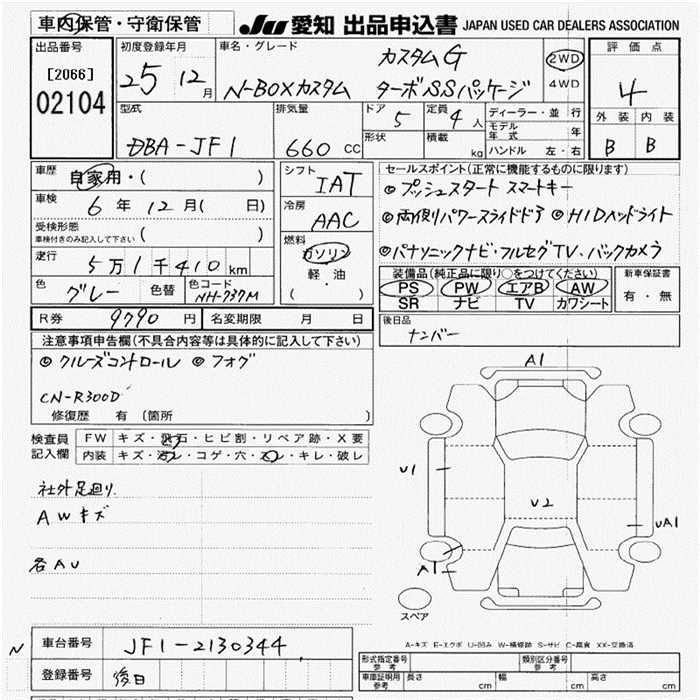 車内保管・守衛保管 JU 愛知 出品申込書 JAPAN USED CAR DEALERS ASSOCIATION
出品番号 [2066] 02104
初度登録年月 25 12月
車名・グレード N-BOXカスタム カスタムG ターボSSパッケージ
2WD
4WD
評価点 4
外装 B 内装 B
型式 DBA-JF1
排気量 660 CC
ドア 5
形状
定員 4人
積載 kg
ディーラー・並行
モデル年式 年
ハンドル 左・右
車歴 自家用・( )
車検 6年 12月( 日)
受検形態 ( )
車検付きのみ記入して下さい
走行 5万1千410km
色 グレー 色替 色コード NH-737M
シフト IAT
冷房 AAC
燃料 ガソリン
軽・油
( )
セールスポイント(正常に機能するものに限ります)
◎プッシュスタート スマートキー
◎両側パワースライドドア ◎HIDヘッドライト
◎パナソニックナビ・フルセグTV、バックカメラ
装備品(純正品に限り○をつけてください)
PS PW エアB AW
SR ナビ TV カワシート
新車保証書
有・無
R券 9790円 名変期限 月 日
後日品
ナンバー
注意事項申告欄(不具合内容等は具体的に記入して下さい)
◎クルーズコントロール ◎フォグ
CN-R300D
修復歴 有 (箇所 )
検査員記入欄
FW キズ・飛石・ヒビ割・リペア跡・X要
内装 キズ・汚レ・コゲ・穴・スレ・キレ・破レ
社外足廻り
AWキズ
各AU
A1
U1
U2
UA1
A1
スペア
A-キズ E-エクボ U-凹み W-補修跡 S-サビ C-腐食 XX-交換済
N
車台番号 JF1-2130344
登録番号 後日
形式指定番号 参考 類別区分番号 参考
車庫証明用 参考 長さ cm 幅 cm 高さ cm